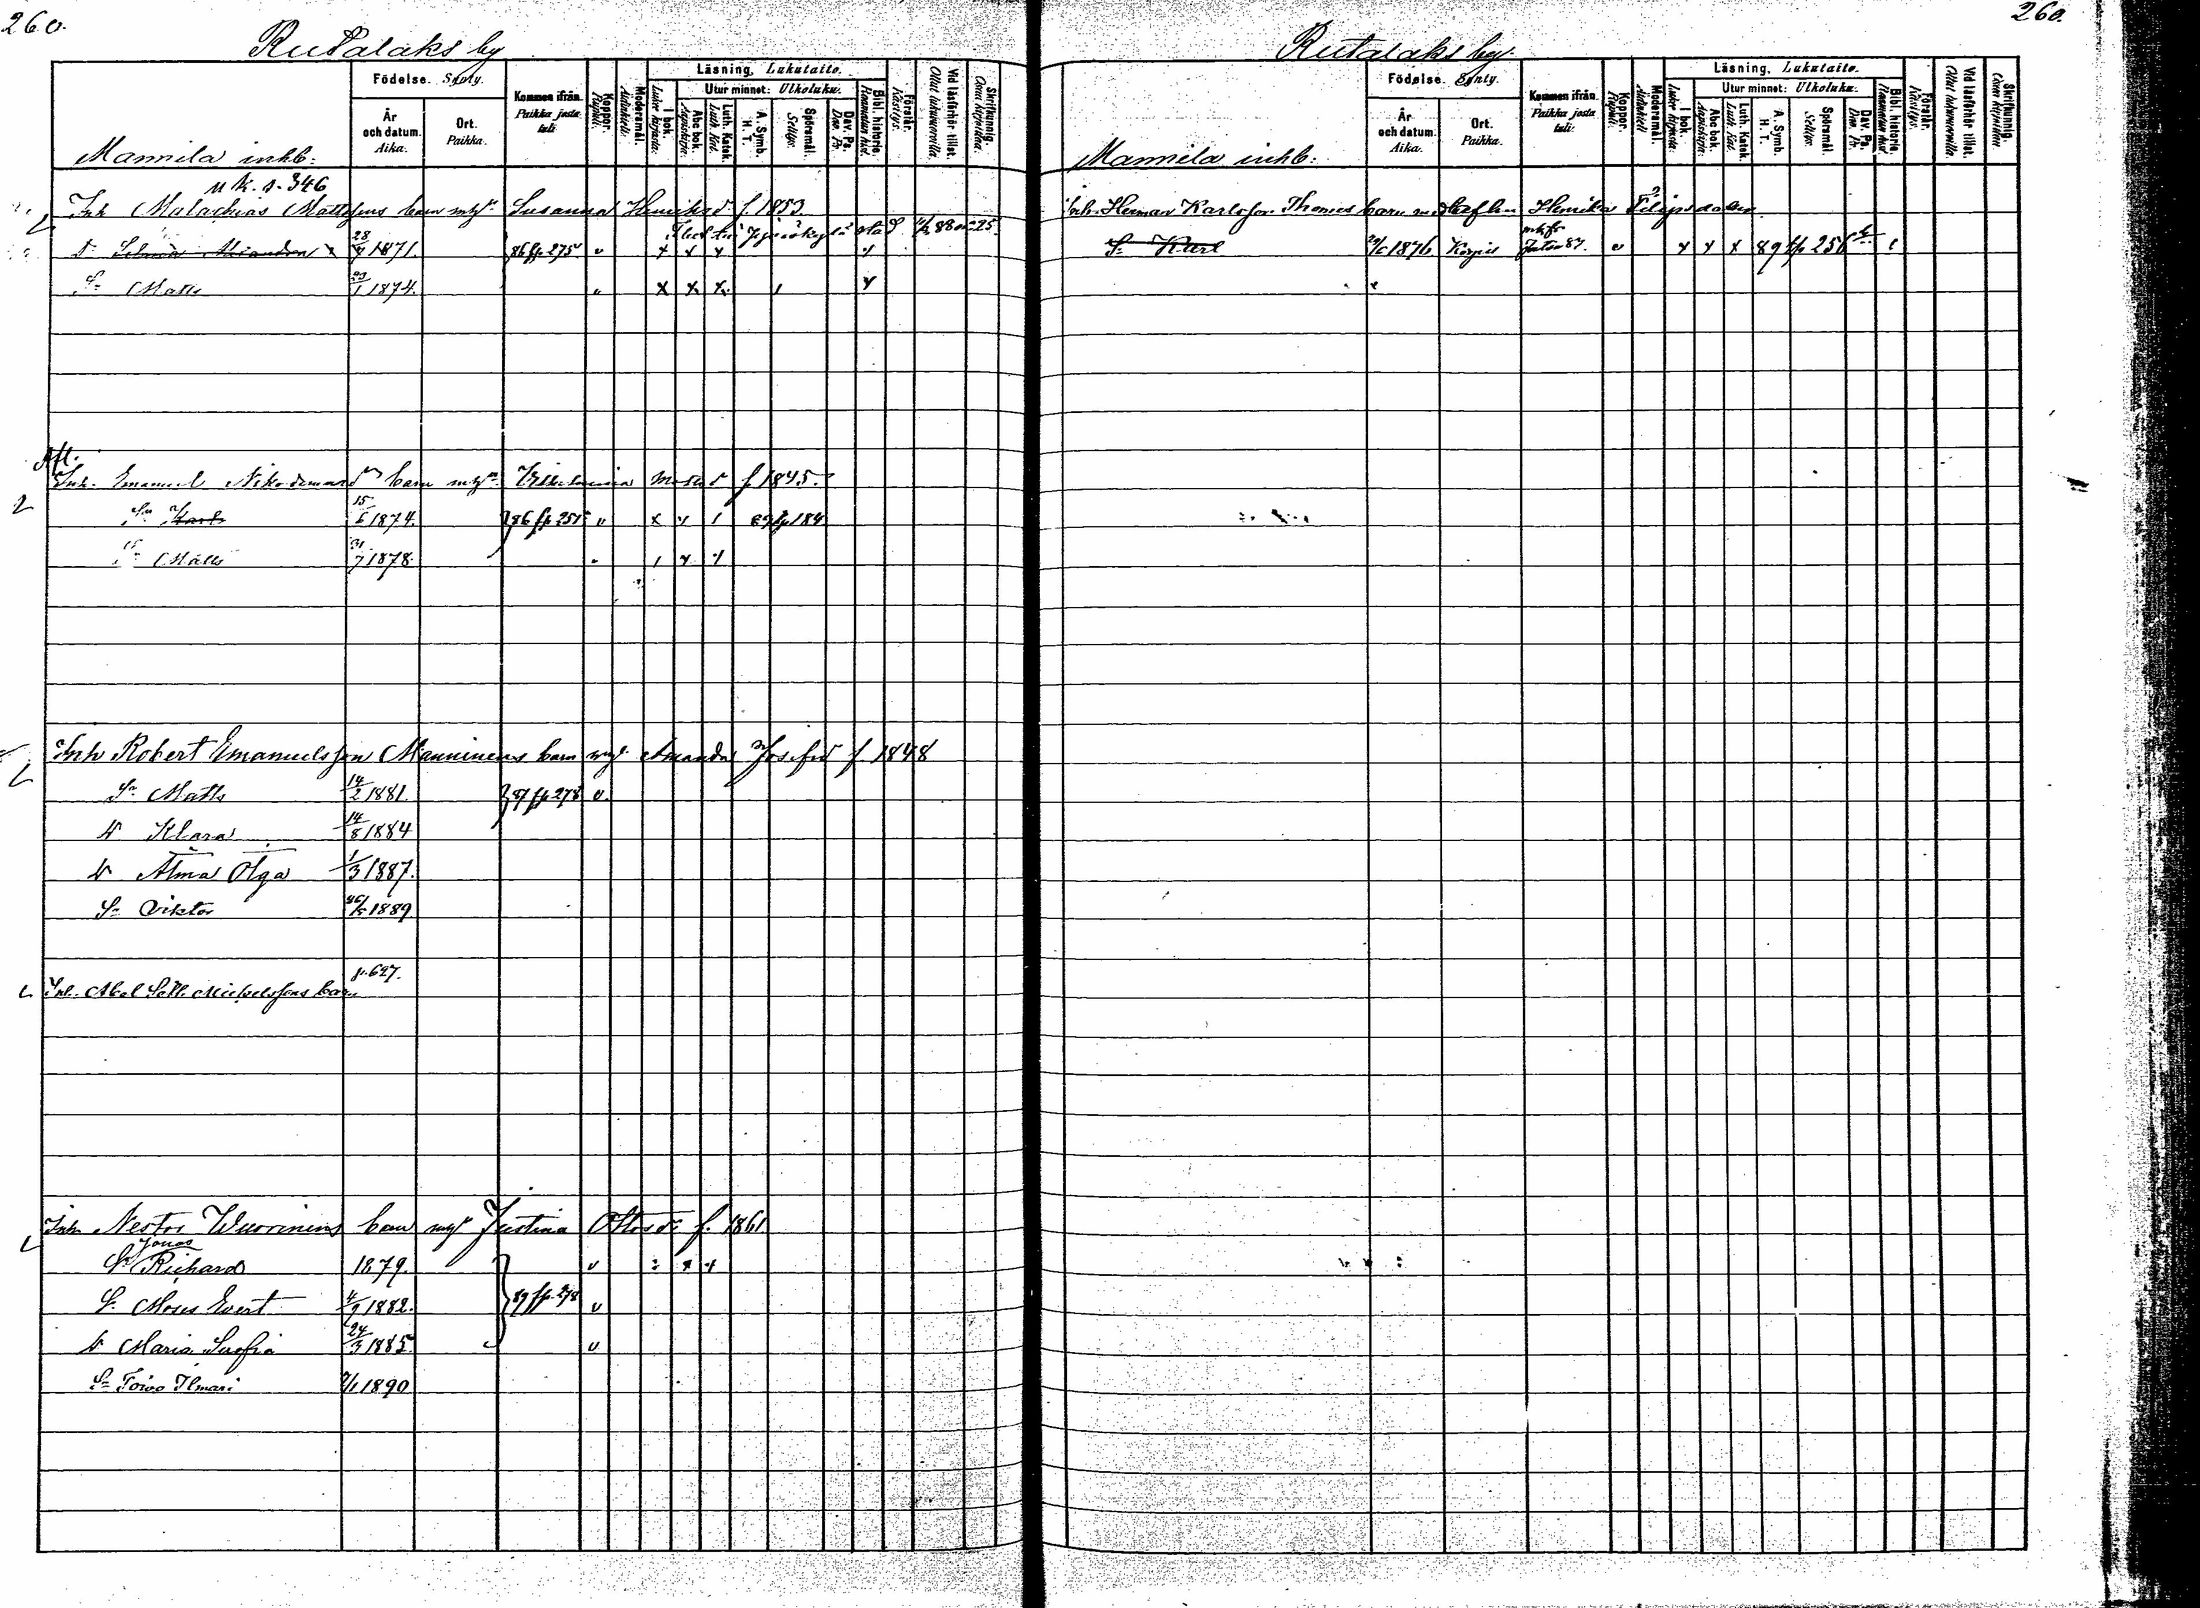 260.
Rutalaks by
Mannila inhb:
Födelse. Synty.
År och datum. Aika.
Ort. Paikka.
Kommen ifrån. Paikka josta tuli.
Koppor. Rupuli.
Modersmål. Äidinkieli.
Läsning. Lukutaito.
I bok. Lukee kirjasta:
Utur minnet: Ulkoluku.
Abc bok. Aapiskirja.
Luth. Katek. Luth. Kat.
A. Symb. H. T.
Spörsmål. Selitys.
Dav. Ps. Dav. Ps.
Bibl. historie. Raamatun hist.
Förstår. Käsitys.
Vid läsförhör tillst. Ollut lukuvuorolla.
Skrifkunnig. Osaa kirjoittaa.
u k. s. 346
Inh Malachias Mattssons barn m. hr Susanna Henriksdr f. 1853
Dr 28/9 1871. 86 fp 275 v x x x 88 n:o 25.
Sn Matts 23/1 1874. x x x
Aft.
Inh. Emanuel Nikodemus barn Vilhelmina f 1845.
Sn Karl 15/6 1874. 86 fp 251 v x 89 fp 184
Sn Matts 31/7 1878.
Inh Robert Emanuelsson Manninens barn Amanda Josefsd f. 1848
Sn Matts 14/2 1881. 87 fp 278 v.
Dr Klara 14/8 1884
Dr Alma Olga 1/3 1887.
Sn Viktor 1889
p. 627.
Inh. Abel Michelssons barn
Inh Nestor Wuorinens barn Justina Ottosdr f. 1861
Jonas
Sn Richard 1879. v
S. Moses Evert 4/9 1882. 87 fp. 278 v
Dr Maria Sofia 24/3 1885. v
Sn Toivo Ilmari 1890
260.
Rutalaks by.
Mannila inhb:
Födelse. Synty.
År och datum. Aika.
Ort. Paikka.
Kommen ifrån. Paikka josta tuli:
Koppor. Rupuli.
Modersmål. Äidinkieli
Läsning. Lukutaito.
I bok. Lukee kirjasta:
Utur minnet: Ulkoluku.
Abc bok. Aapiskirja.
Luth. Katek. Luth. Kat.
A. Symb. H. T.
Spörsmål. Selitys.
Dav. Ps. Dav. Ps.
Bibl. historie. Raamatun hist.
Förstår. Käsitys.
Vid läsförhör tillst. Ollut lukuvuorolla.
Skrifkunnig. Osaa kirjoittaa.
Inh. Herman Karlsson Thomes barn Henrika Filipsdotter
S. Karl 1876 Korpis 87. v x x x 89 fp 256